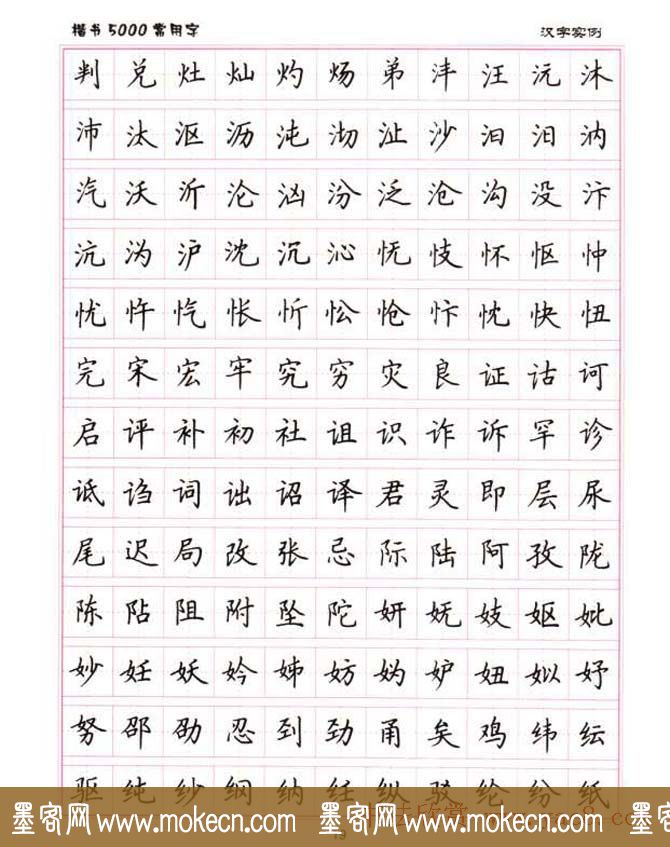 楷书5000常用字 汉字实例
判兑灶灿灼炀弟沣汪沅沐
沛汰沤沥沌沏沚沙汩汨汭
汽沃沂沦汹汾泛沧沟没汴
沆沩沪沈沉沁怃忮怀怄忡
忧忤忾怅忻忪怆忭忱快忸
完宋宏牢究穷灾良证诂诃
启评补初社诅识诈诉罕诊
诋诌词诎诏译君灵即层尿
尾迟局改张忌际陆阿孜陇
陈阽阻附坠陀妍妩妓妪妣
妙妊妖妗姊妨妫妒妞姒妤
努邵劭忍到劲甬矣鸡纬纭
驱纯纱纲纳纴纵驳纶纷纸
墨客网 www.mokecn.com 墨客网 www.mokecn.com 墨客网